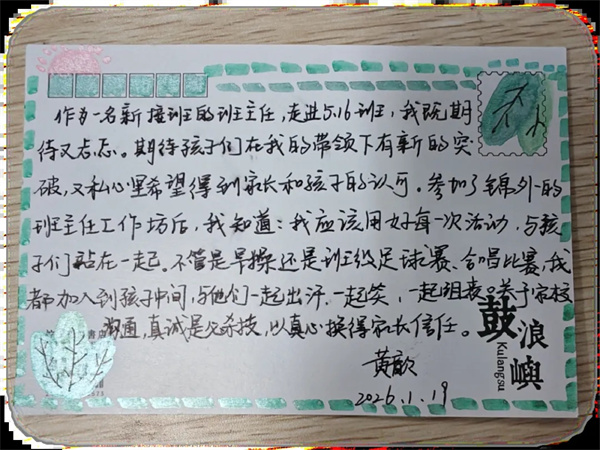 作为一名新接班的班主任，走进5.16班，我既期
待又忐忑。期待孩子们在我的带领下有新的突
破，又私心里希望得到家长和孩子的认可。参加了锦外的
班主任工作坊后，我知道：我应该用好每一次活动，与孩
子们站在一起。不管是早操还是班级足球赛、合唱比赛，我
都加入到孩子中间，与他们一起出汗，一起笑，一起沮丧。关于家校
沟通，真诚是必杀技，以真心换得家长信任。
鼓浪屿
Kulangsu
书店
黄歆
2026.1.19